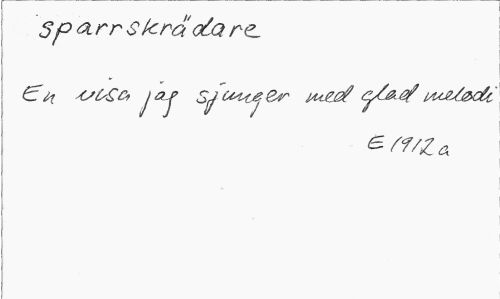 sparrskrädare
En visa jag sjunger med glad melodi
E 1912 a